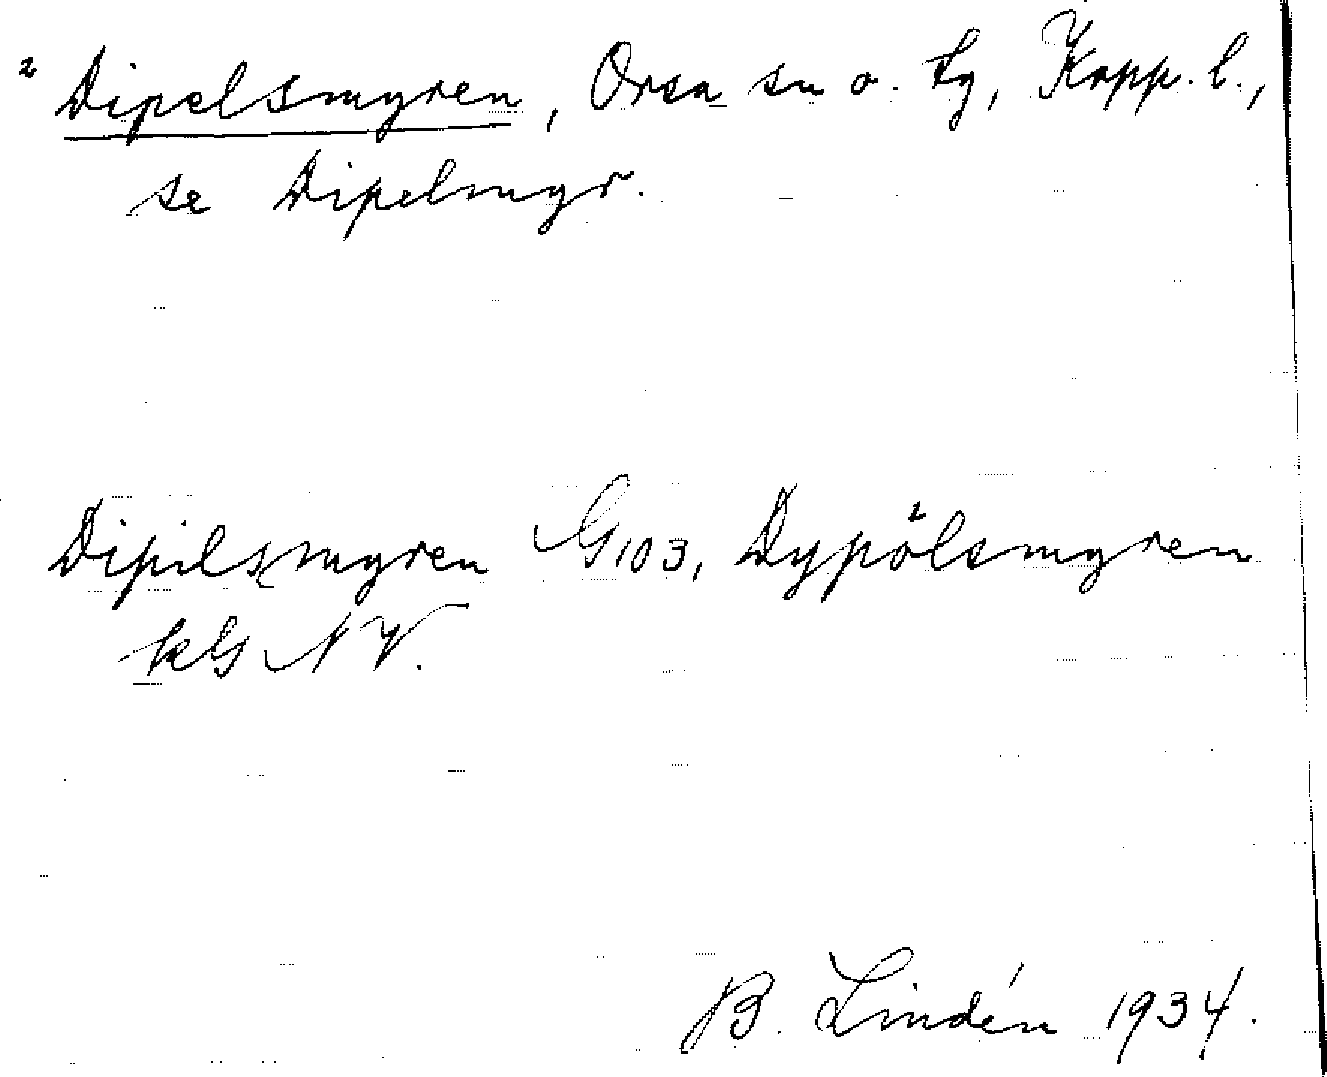 ² Dipelsmyren, Orsa sn o. tg, Kopp. l.,
se Dipelmyr.
Dipilsmyren G103, Dypölsmyren
kG NV.
B. Lindén 1934.